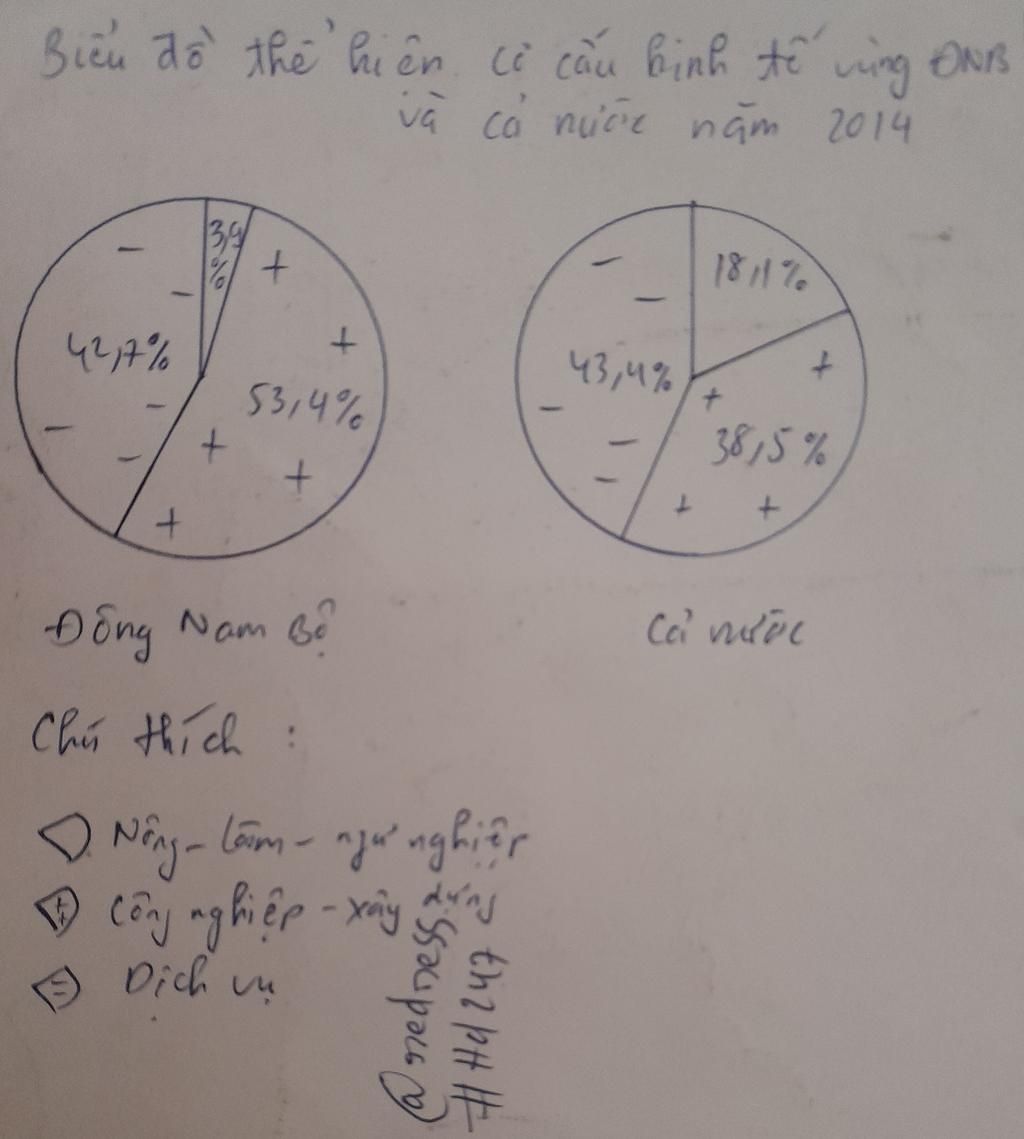 Biểu đồ thể hiện cơ cấu kinh tế vùng ĐNB
và cả nước năm 2014
3,9
%
42,7%
53,4%
18,1%
43,4%
38,5%
Đông Nam Bộ
Cả nước
Chú thích :
Nông - lâm - ngư nghiệp
Công nghiệp - xây dựng
Dịch vụ